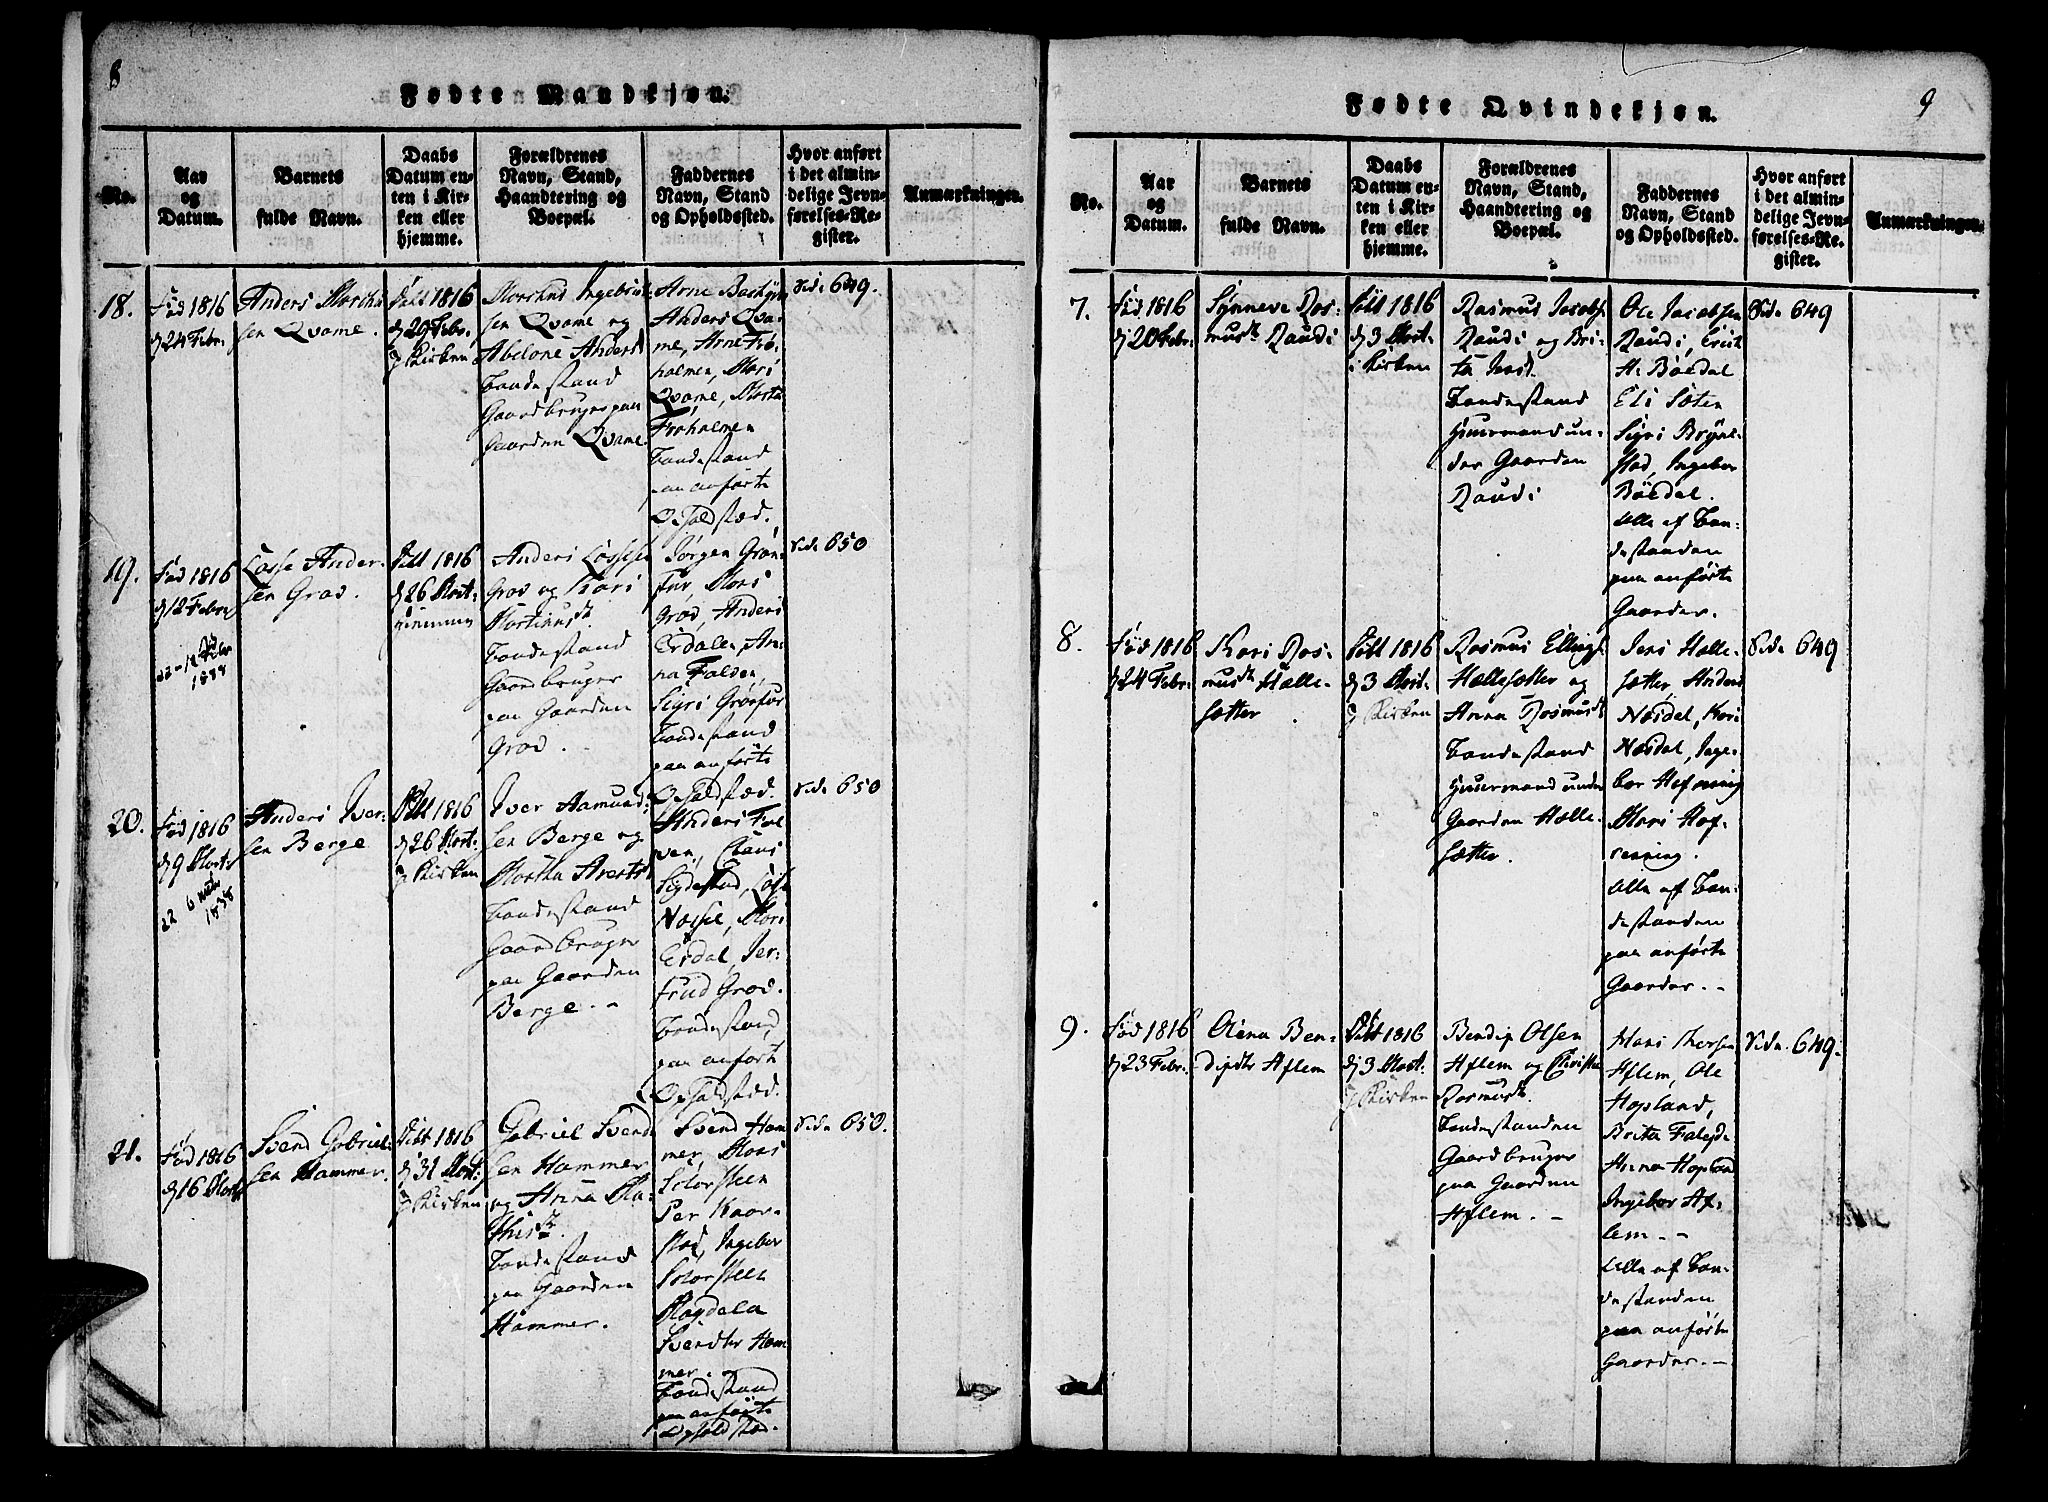 8
Fødte Mandkjøn.
No.
Aar og Datum.
Barnets fulde Navn.
Daabs Datum enten i Kirken eller hjemme.
Forældrenes Navn, Stand, Haandtering og Boepæl.
Faddernes Navn, Stand og Opholdssted.
Hvor anført i det almindelige Jevnførelses-Register.
Anmærkninger.
18.
Død 1816
24 Febr.
Anders
sen Qvame.
1816
d 29 Febr.
Kirken
Ingebrigt
sen Qvame og
Abelone Anders
Bondestand
Gaardbruger paa
Gaarden Qvame.
Arne
Anders Qva-
me, Arne Frø-
holmen, Mari
Qvame, Marta
Frøholmen
Bondestand
paa anførte
Opholdsted.
Side 649.
19.
Fød 1816
d 12 Febr
Lasse Ander-
sen Grov.
1816
d 26 Mart.
Anders Lassesen
Grov og Kari
Bondestand
Gaardbruger
paa Gaarden
Grov.
Jørgen Grøn-
fur, Mari
Grov, Anders
Erdalen, An-
na Folden,
Sigri Grønfur
Bondestand
paa anførte
Opholdsted.
Side 650
20.
Fød 1816
d 9 Mart.
1838
Anders Iver-
sen Berge
1816
d 26 Mart.
Kirken
Iver Aamund-
sen Berge og
Martha
Bondestand
Gaardbruger
paa Gaarden
Berge. -
Anders Fol-
ven, Claus
Lasse
Nosse, Mari
Erdal, Jer-
trud Grov.
Bondestand,
paa anførte
Opholdsted.
Side 650
21.
Fød 1816
d 16 Mart.
Svend Gabriel-
sen Hammer.
1816
d 31 Mart.
Kirken
Gabriel Svend
sen Hammer
og Anna Ma-
this dtr.
Bondestand
paa Gaarden
Hammer.
Svend Ham
mer, Mari
Solorsteen
Per Kaar-
stad, Ingebor
Solorsteen
Magdela
Svendtr Ham
mer. -
Bondestand
paa anførte
Opholdsted.
Side 650.
9
Fødte Qvindekjøn.
No.
Aar og Datum.
Barnets fulde Navn.
Daabs Datum enten i Kirken eller hjemme.
Forældrenes Navn, Stand, Haandtering og Boepæl.
Faddernes Navn, Stand og Opholdssted.
Hvor anført i det almindelige Jevnførelses-Register.
Anmærkninger.
7.
Fød 1816
d 20 Febr.
Synneve Ras-
musdr Raudi
1816
d 3 Mart.
i Kirken
Rasmus Jacobs.
Raudi og Bri-
ta
Bondestand
Huusmand un-
der Gaarden
Raudi
Ole Jacobsen
Raudi, Erich
A. Bödal
Eli Sæten
Sigri Bryne-
stad, Ingebor
Bödal.
Alle af Bon-
destanden
paa anførte
Gaarder.
Side 649
8.
Fød 1816
d 24 Febr.
Kari Ras-
musdr Hælle-
sætter
1816
d 3 Mart.
Kirken
Rasmus Ellings
Hællesætter og
Anna Rasmusdr
Bondestand
Huusmand under
Gaarden Hælle-
sætter.
Jens Hælle-
sætter, Anders
Næsdal, Kari
Næsdal, Inge-
bor
Mari Haf-
renning.
Alle af Bon-
destanden
paa anførte
Gaarder. -
Side 649
9.
Fød 1816
d 23 Febr.
Olena Ben-
dipdtr Aflem
1816
d 3 Mart.
Kirken
Bendip Olsen
Aflem og Christie
Rasmusdr.
Bondestanden
Gaardbruger
paa Gaarden
Aflem. -
Hans Thorsen
Aflem, Ole
Hopland,
Brita
Anna Hopland
Ingebor Af-
lem. -
Alle af Bon-
destanden
paa anførte
Gaarder. -
Side 649.